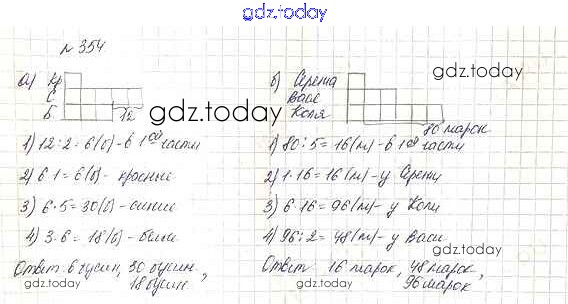 gdz.today
№ 354
а) Кр
С
Б
12
gdz.today
1) 12:2=6(б)-в 1ой части
2) 6·1=6(б)- красные
3) 6·5=30(б)-синие
4) 3·6=18(б)-белые
Ответ: 6 бусин, 30 бусин,
18 бусин
gdz.today
б) Серёжа
Вася
Коля
gdz.today
80 марок
1) 80:5=16(м)-в 1ой части
2) 1·16=16(м)-у Серёжи
3) 6·16=96(м)-у Коли
4) 96:2=48(м)-у Васи
gdz.today
Ответ: 16 марок, 48 марок,
96 марок
gdz.today